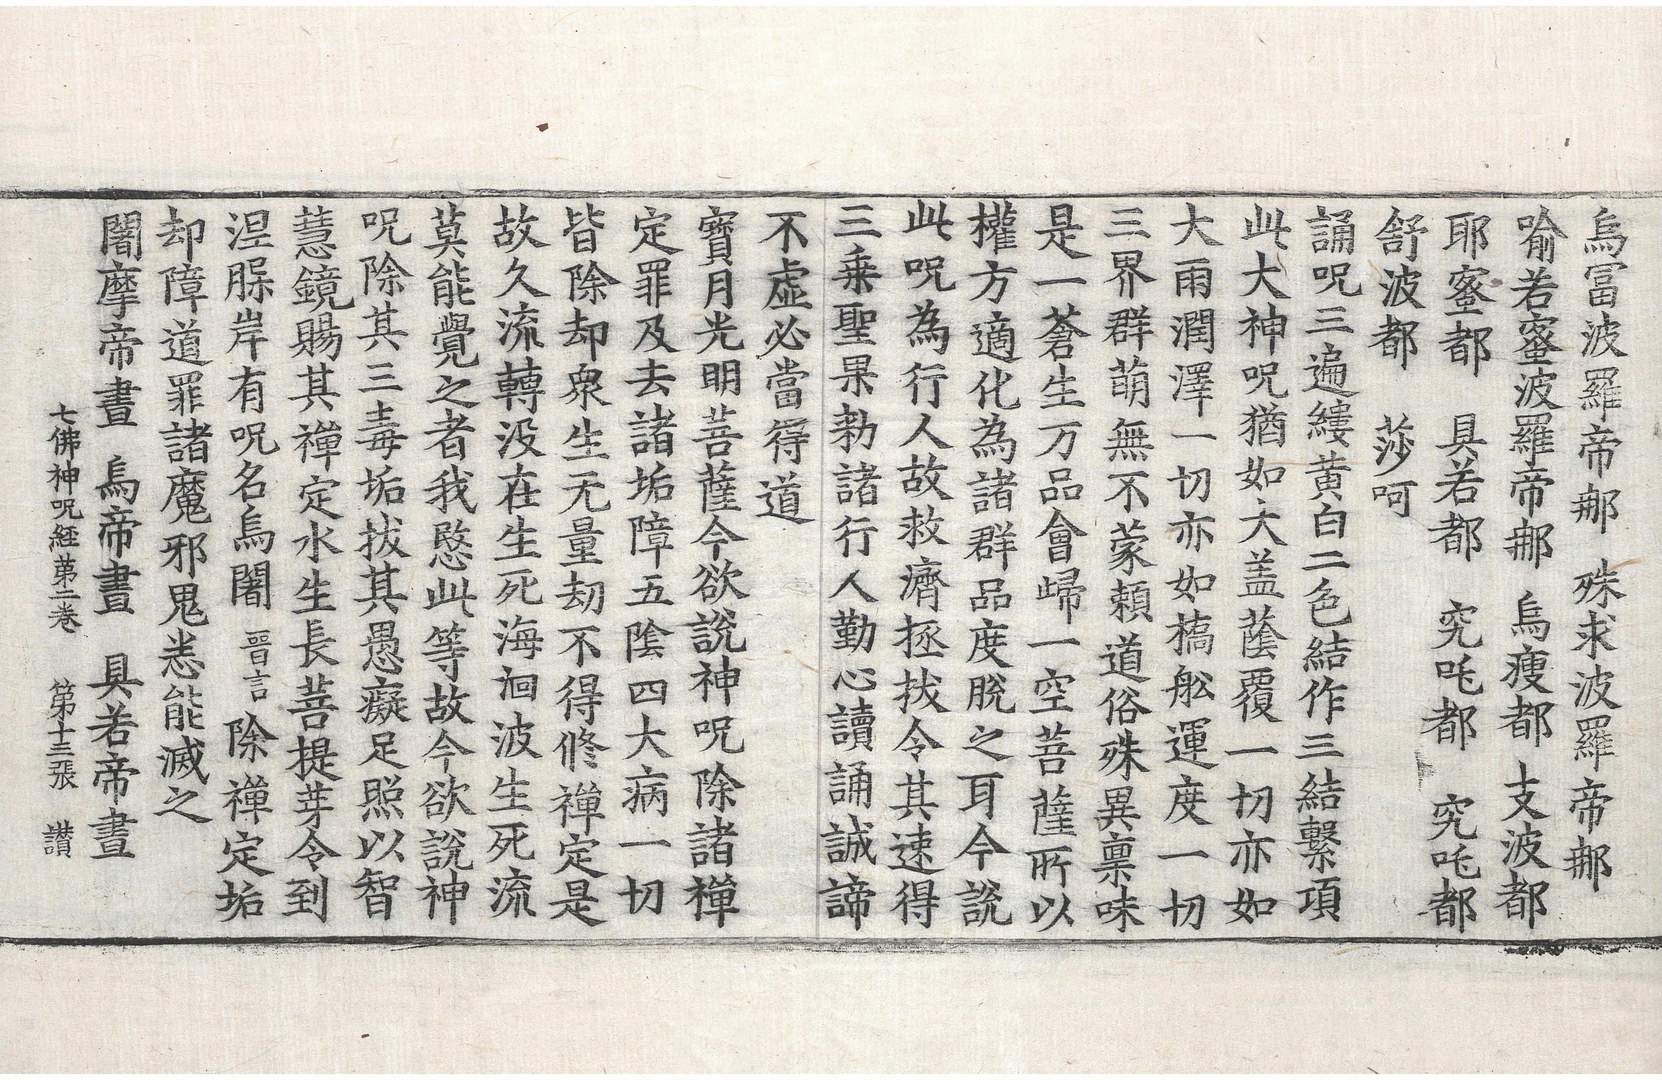 烏冨波羅帝𨚗 殊求波羅帝𨚗
喻若蜜波羅帝𨚗 烏瘦都 支波都
耶蜜都 具若都 究吒都 究吒都
舒波都 莎呵
誦呪三遍縷黄白二色結作三結繫項
此大神呪猶如大盖蔭覆一切亦如
大雨潤澤一切亦如橋舩運度一切
三界群萌無不蒙頼道俗殊異禀味
是一蒼生万品會歸一空菩薩所以
權方適化為諸群品度脫之耳今說
此呪為行人故救濟拯拔令其速得
三乗聖果勑諸行人勤心讀誦誠諦
不虛必當得道
寳月光明菩薩今欲說神呪除諸禪
定罪及去諸垢障五隂四大病一切
皆除却衆生无量劫不得修禪定是
故久流轉没在生死海洄波生死流
莫能覺之者我愍此等故今欲說神
呪除其三毒垢拔其愚癡足照以智
慧鏡賜其禪定水生長菩提芽令到
涅脲岸有呪名烏闇 晉言 除禪定垢
却障道罪諸魔邪鬼恙能滅之
闇摩帝晝 烏帝晝 具若帝晝
七佛神呪經第二卷 第十三張 讃